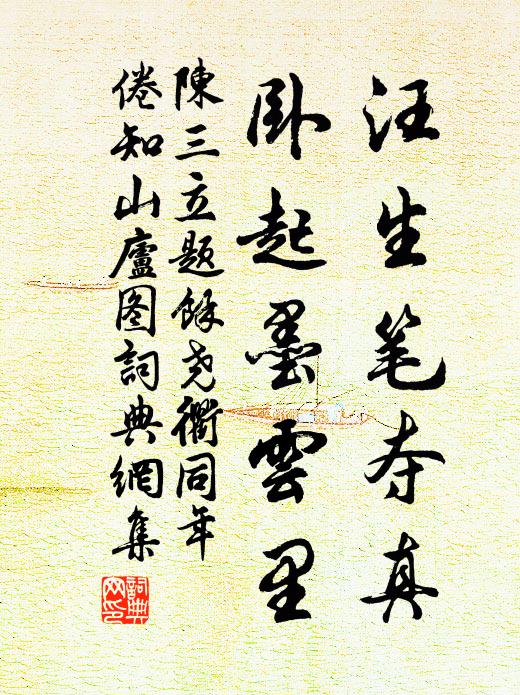 汪生笔夺真
卧起墨雲里
陳三立题餘尧衢同年
倦知山廬图詞典網集
詞典网印